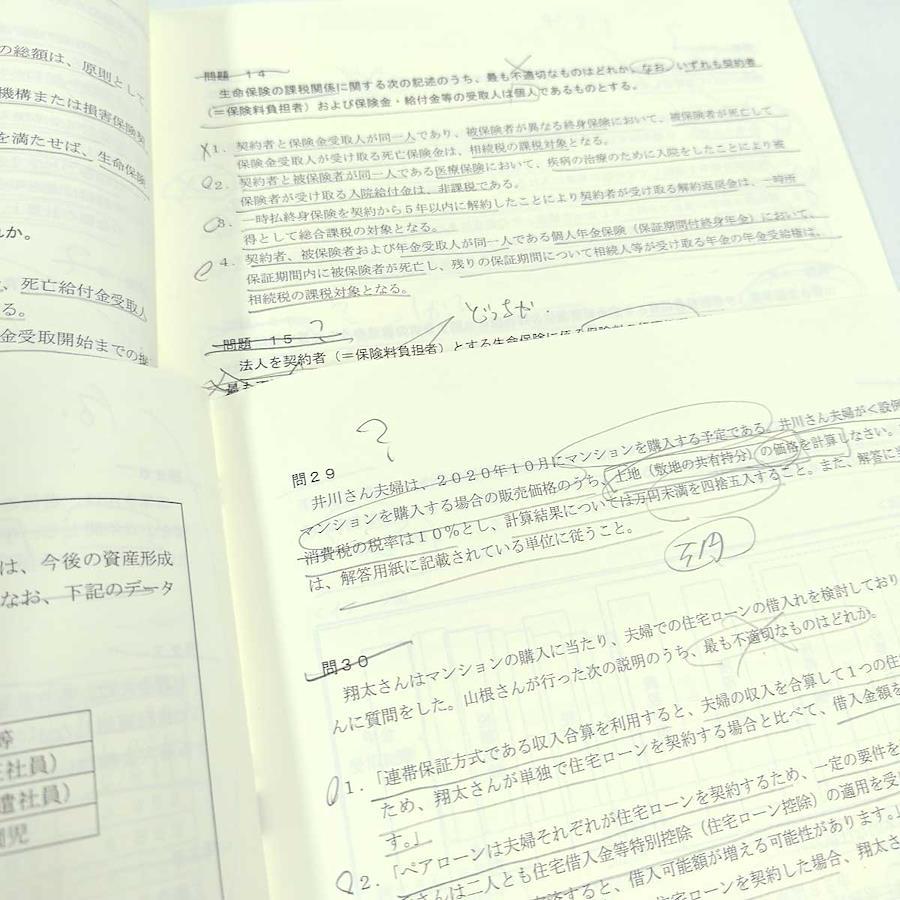 の総額は、原則として
機構または損害保険契
を満たせば、生命保険
れか。
、死亡給付金受取人
る。
金受取開始までの
問題 14
生命保険の課税関係に関する次の記述のうち、最も不適切なものはどれか。なお、いずれも契約者
（＝保険料負担者）および保険金・給付金等の受取人は個人であるものとする。
×1．契約者と保険金受取人が同一人であり、被保険者が異なる終身保険において、被保険者が死亡して
保険金受取人が受け取る死亡保険金は、相続税の課税対象となる。
○2．契約者と被保険者が同一人である医療保険において、疾病の治療のために入院をしたことにより被
保険者が受け取る入院給付金は、非課税である。
○3．一時払終身保険を契約から5年以内に解約したことにより契約者が受け取る解約返戻金は、一時所
得として総合課税の対象となる。
○4．契約者、被保険者および年金受取人が同一人である個人年金保険（保証期間付終身年金）において、
保証期間内に被保険者が死亡し、残りの保証期間について相続人等が受け取る年金の年金受給権は、
相続税の課税対象となる。
どっちか.
問題 15 ?
法人を契約者（＝保険料負担者）とする生命保険に係る保険料
最も
は、今後の資産形成
なお、下記のデータ
等
社員）
遣社員）
児
?
問29
井川さん夫婦は、2020年10月にマンションを購入する予定である。井川さん夫婦が＜設例
マンションを購入する場合の販売価格のうち、土地（敷地の共有持分）の価格を計算しなさい。
消費税の税率は10％とし、計算結果については万円未満を四捨五入すること。また、解答に
は、解答用紙に記載されている単位に従うこと。
万円
問30
翔太さんはマンションの購入に当たり、夫婦での住宅ローンの借入れを検討しており
んに質問をした。山根さんが行った次の説明のうち、最も不適切なものはどれか。
○1．「連帯保証方式である収入合算を利用すると、夫婦の収入を合算して1つの住
ため、翔太さんが単独で住宅ローンを契約する場合と比べて、借入金額を
す。」
○2．「ペアローンは夫婦それぞれが住宅ローンを契約するため、一定の要件を
さんは二人とも住宅借入金等特別控除（住宅ローン控除）の適用を受
すると、借入可能額が増える可能性があります。」
住宅ローンを契約した場合、翔太さ